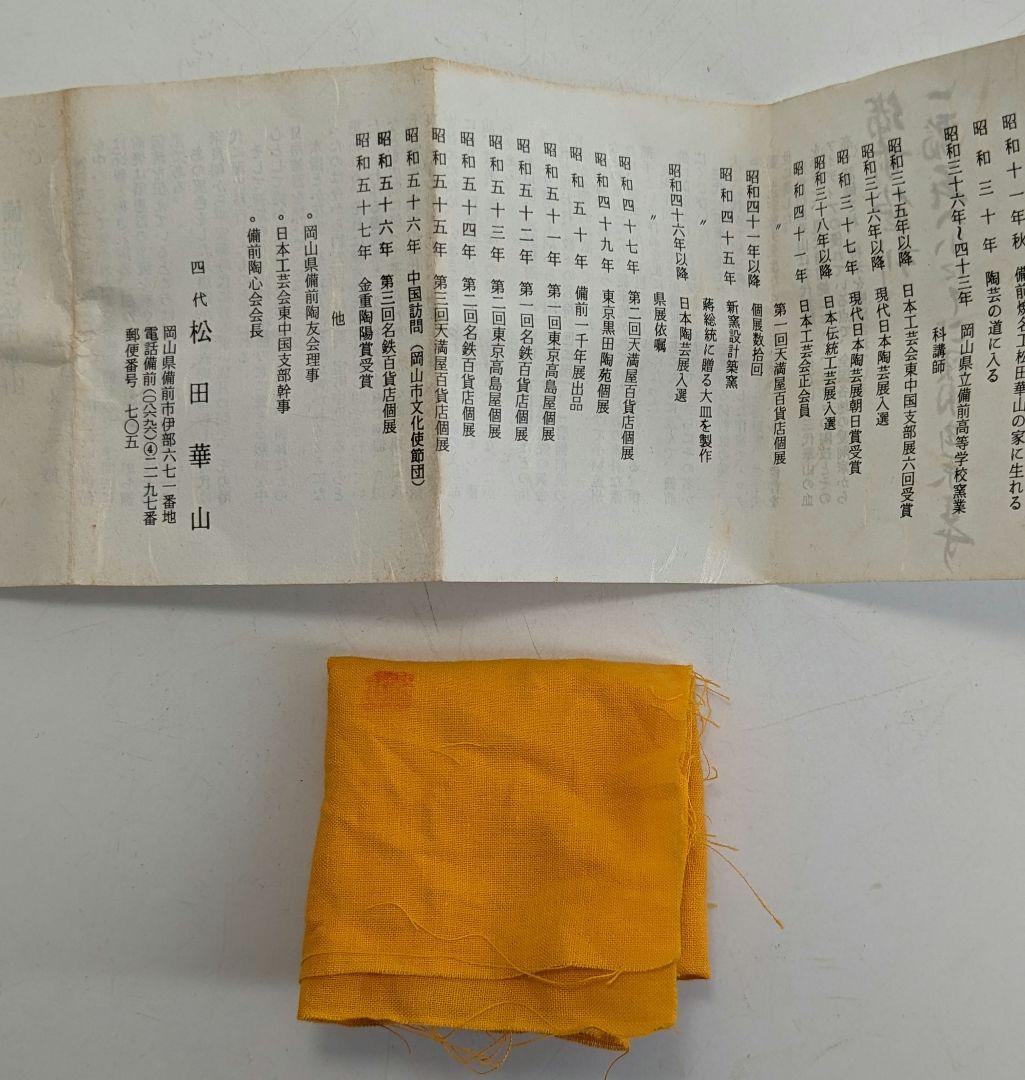 和十一年秋　備前焼名工松田華山の家に生れる
昭和三十年　陶芸の道に入る
昭和三十六年〜四十三年　岡山県立備前高等学校窯業
科講師
昭和三十五年以降　日本工芸会東中国支部展六回受賞
昭和三十六年以降　現代日本陶芸展入選
昭和三十七年　現代日本陶芸展朝日賞受賞
昭和三十八年以降　日本伝統工芸展入選
昭和四十一年　日本工芸会正会員
〃　第一回天満屋百貨店個展
昭和四十一年以降　個展数拾回
昭和四十五年　新窯設計築窯
〃　蔣総統に贈る大皿を製作
昭和四十六年以降　日本陶芸展入選
〃　県展依嘱
昭和四十七年　第二回天満屋百貨店個展
昭和四十九年　東京黒田陶苑個展
昭和五十年　備前一千年展出品
昭和五十一年　第一回東京高島屋個展
昭和五十二年　第一回名鉄百貨店個展
昭和五十三年　第二回東京高島屋個展
昭和五十四年　第二回名鉄百貨店個展
昭和五十五年　第三回天満屋百貨店個展
昭和五十六年　中国訪問（岡山市文化使節団）
昭和五十六年　第三回名鉄百貨店個展
昭和五十七年　金重陶陽賞受賞
他
。岡山県備前陶友会理事
。日本工芸会東中国支部幹事
。備前陶心会会長
四代　松田華山
岡山県備前市伊部六七一番地
電話備前（〇八六九六）④二一九七番
郵便番号　七〇五